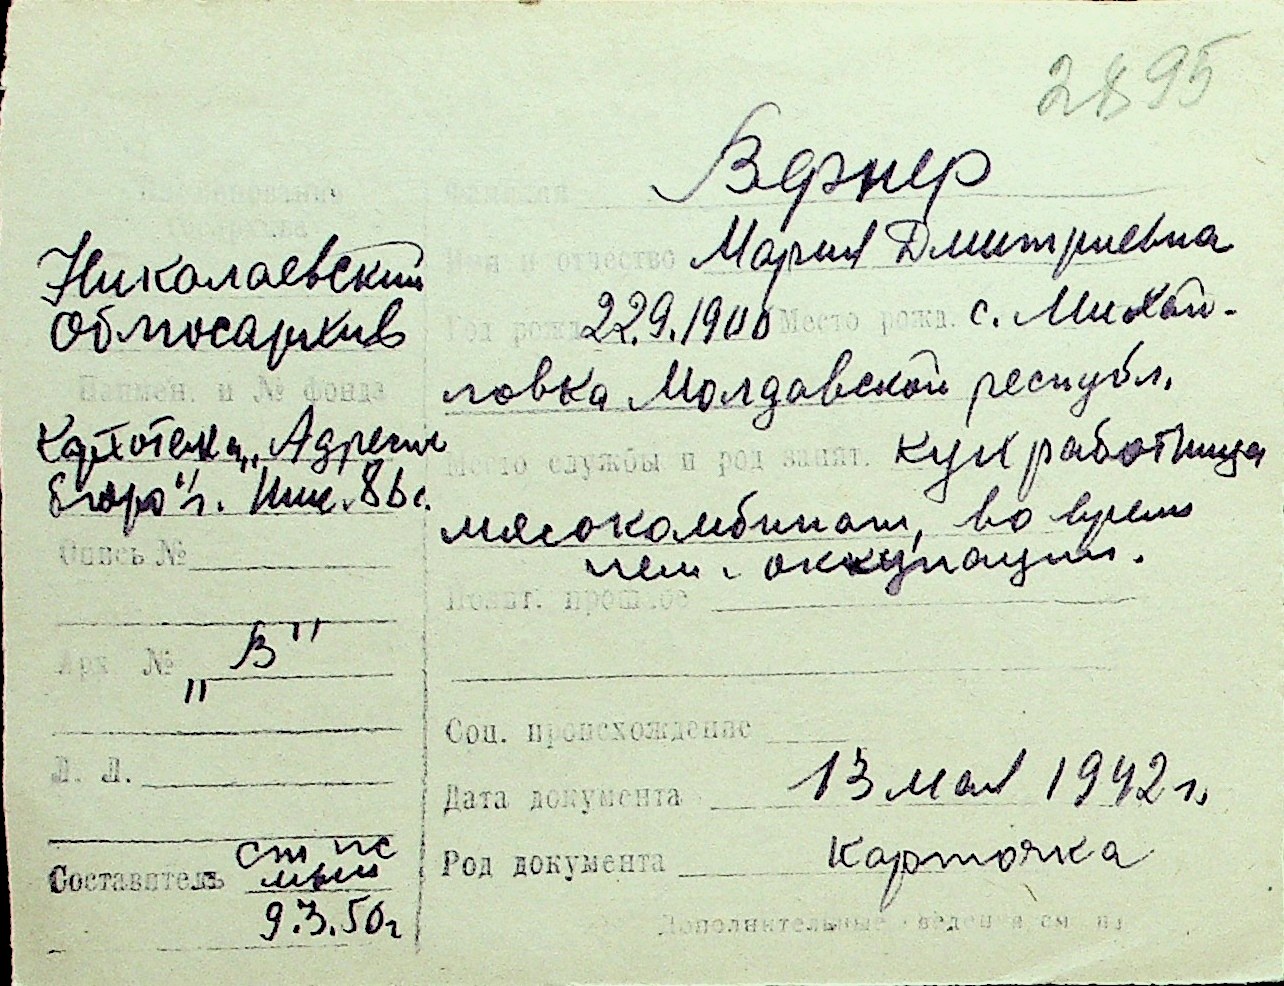 2895
Наименование
архива
Николаевский
Облгосархив
Наимен. и № фонда
Картотека „Адресно
Бюро" г. Ник. 86 с.
Опись №
Арх. № „В"
Л. Л.
Составитель
9.3.50г
Фамилия Вернер
Имя и отчество Мария Дмитриевна
Год рожд. 22.9.1900 Место рожд. с. Михай-
ловка Молдавской республ.
Место службы и род занят. кух работница
мясокомбинат, во время
нем. оккупации.
Полит. прошлое
Соц. происхождение
Дата документа 13 мая 1942 г.
Род документа Карточка
Дополнительные сведения см на